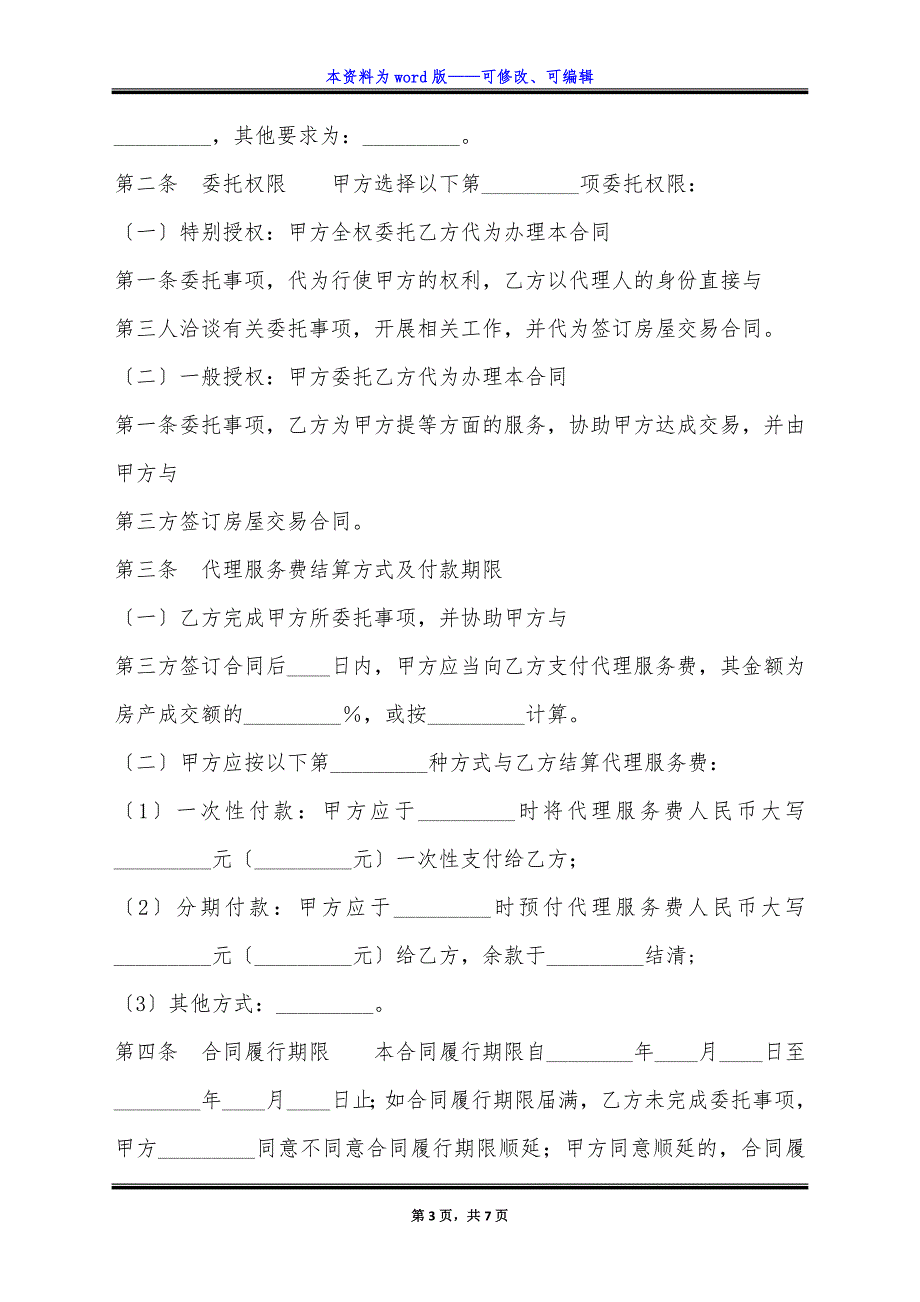 本资料为 word 版——可修改、可编辑
_________，其他要求为：_________。
第二条　委托权限　　甲方选择以下第_________项委托权限：
〔一〕特别授权：甲方全权委托乙方代为办理本合同
第一条委托事项，代为行使甲方的权利，乙方以代理人的身份直接与
第三人洽谈有关委托事项，开展相关工作，并代为签订房屋交易合同。
〔二〕一般授权：甲方委托乙方代为办理本合同
第一条委托事项，乙方为甲方提等方面的服务，协助甲方达成交易，并由
甲方与
第三方签订房屋交易合同。
第三条　代理服务费结算方式及付款期限
〔一〕乙方完成甲方所委托事项，并协助甲方与
第三方签订合同后____日内，甲方应当向乙方支付代理服务费，其金额为
房产成交额的_________％，或按_________计算。
〔二〕甲方应按以下第_________种方式与乙方结算代理服务费：
〔1〕一次性付款：甲方应于_________时将代理服务费人民币大写
_________元〔_________元〕一次性支付给乙方；
〔2〕分期付款：甲方应于_________时预付代理服务费人民币大写
_________元〔_________元〕给乙方，余款于_________结清；
〔3〕其他方式：_________。
第四条　合同履行期限　　本合同履行期限自________年____月____日至
________年____月____日止；如合同履行期限届满，乙方未完成委托事项，
甲方_________同意不同意合同履行期限顺延；甲方同意顺延的，合同履
第 3 页，共 7 页